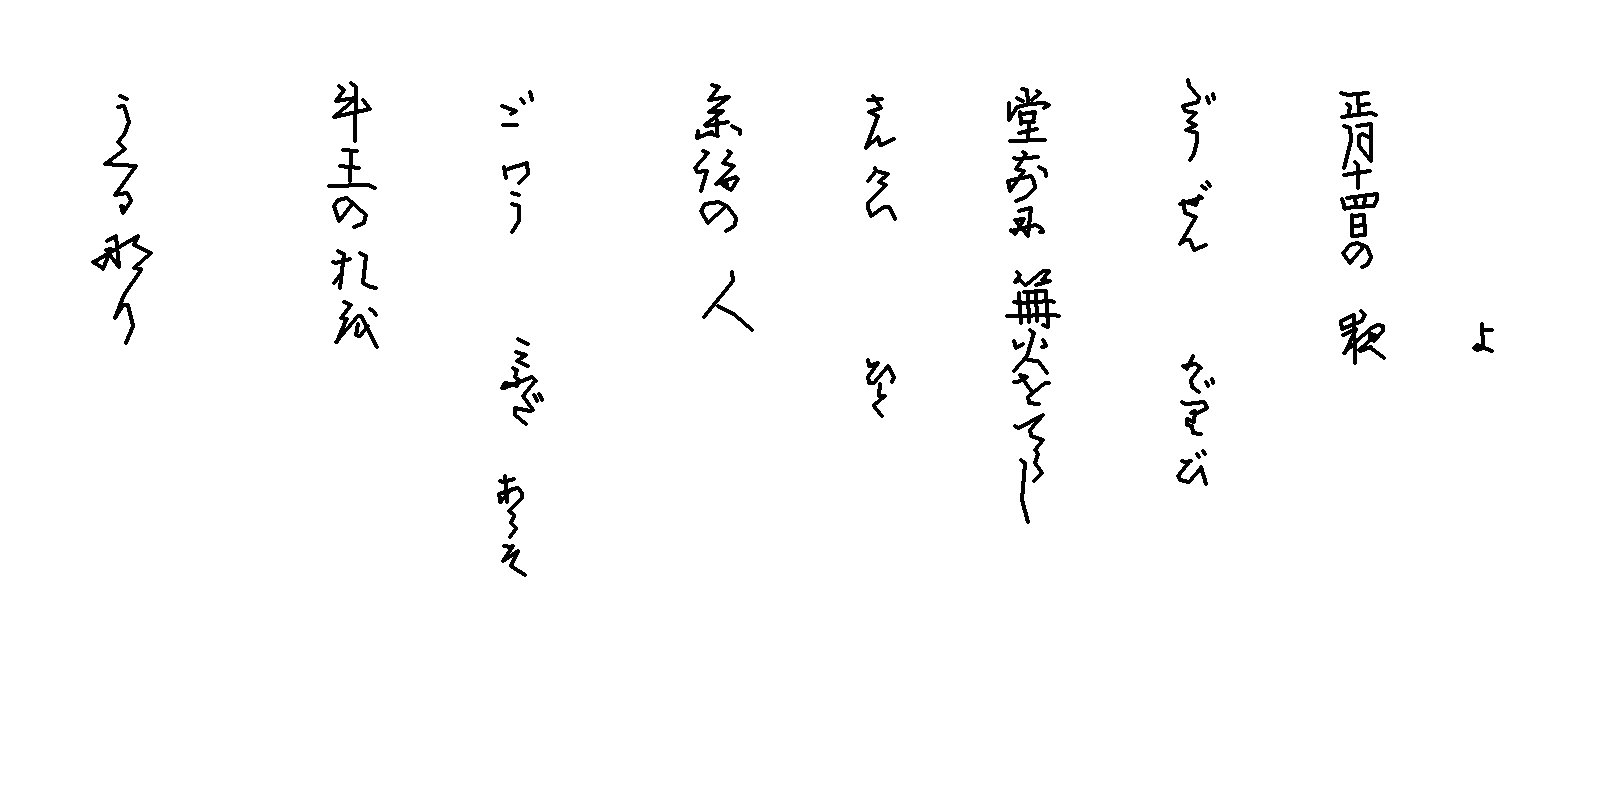 よ
正月十四日の夜
どうぜん かゞりび
堂前に篝火をてらし
さんけい ひと
参詣の人
ごわう ふだ あらそ
牛王の札を
うくるなり